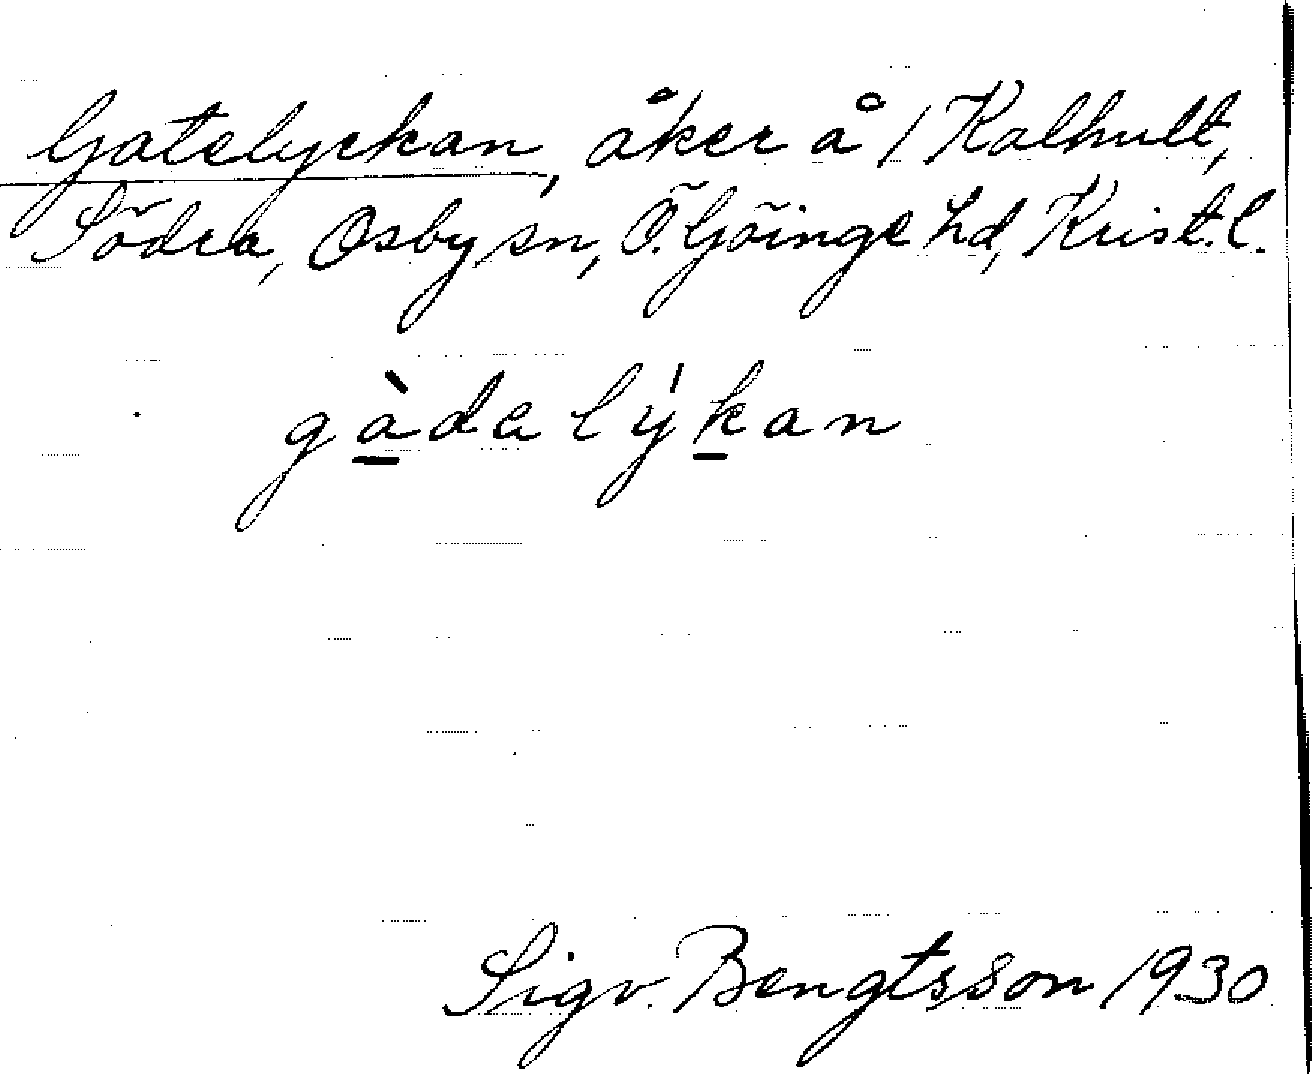 Gatelyckan, åker å 1 Kalhult,
Södra, Osby sn, Ö. Göinge hd, Krist. l.
gàdalýkan
Sigv. Bengtsson 1930